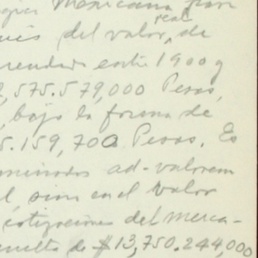 Mexicana por
real
del valor, de
entre 1900 y
2,575.579,000 Pesos,
bajo la forma de
5.159,700 Pesos. Es
ad-valorem
sino en el valor
cotizaciones del merca-
$13,750.244,000